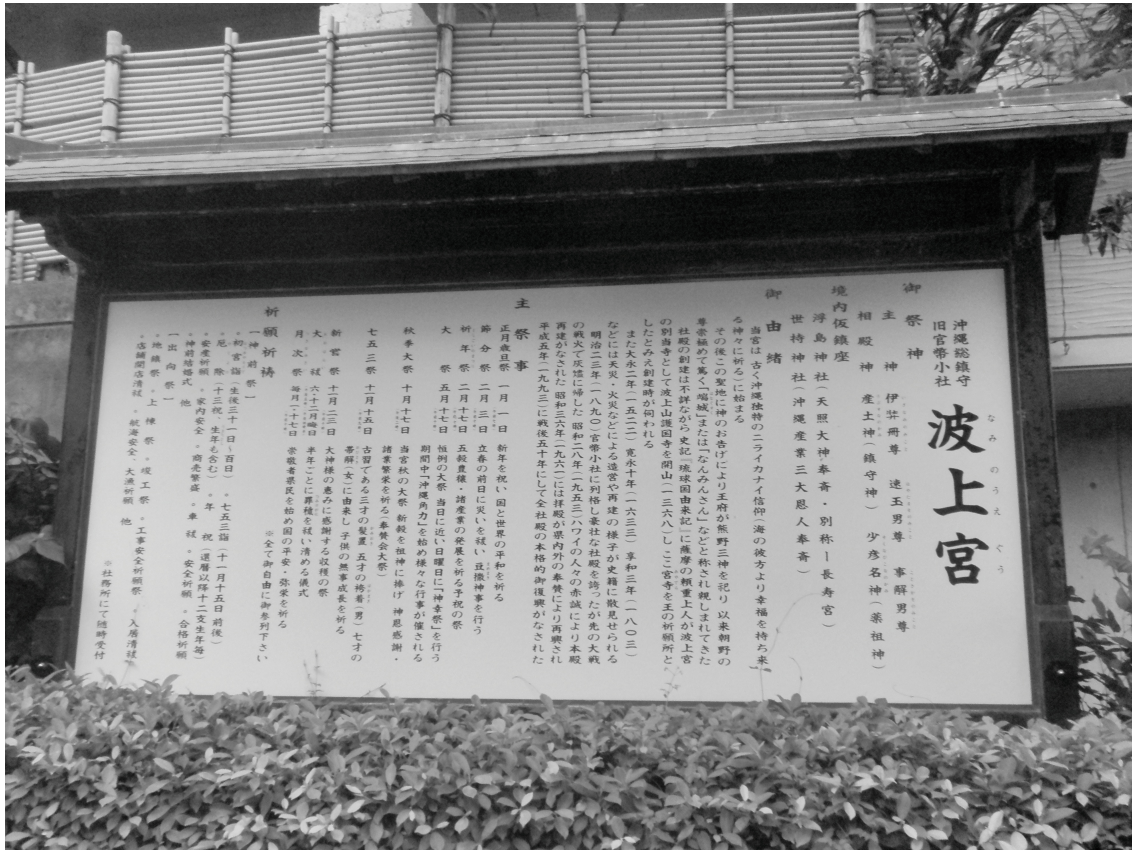 沖縄総鎮守
旧官幣小社
波上宮
なみのうえぐう
御祭神
主神 伊弉冊尊 速玉男尊 事解男尊
相殿神 産土神(鎮守神) 少彦名神(薬祖神)
境内仮鎮座
浮島神社(天照大神奉斎・別称ー長寿宮)
世持神社(沖縄産業三大恩人奉斎)
御由緒
当宮は、古く沖縄独特のニライカナイ信仰(海の彼方より幸福を持ち来
る神々に祈る)に始まる
その後この聖地に神のお告げにより王府が熊野三神を祀り 以来朝野の
尊崇極めて篤く「端城」または「なんみんさん」などと称され親しまれてきた
社殿の創建は不詳ながら史記「琉球国由来記」に薩摩の頼重上人が波上宮
の別当寺として波上山護国寺を開山(一三六八)し ここ宮寺を王の祈願所と
したとみえ創建時が伺われる
また大永二年(一五二二) 寛永十年(一六三三) 享和三年(一八〇三)
などには天災・火災などによる造営や再建の様子が史籍に散見せられる
明治二三年(一八九〇)官幣小社に列格し豪壮な社殿を誇ったが先の大戦
の戦火で灰燼に帰した 昭和二八年(一九五三)ハワイの人々の赤誠により本殿
再建がなされた 昭和三六年(一九六一)には拝殿が県内外の奉賛により再興され
平成五年(一九九三)に戦後五十年にして全社殿の本格的御復興がなされた
主祭事
正月歳旦祭 一月一日 新年を祝い国と世界の平和を祈る
節分祭 二月三日 立春の前日に災いを祓い 豆撒神事を行う
祈年祭 二月十七日 五穀農穣・諸産業の発展を祈る予祝の祭
大祭 五月十七日 恒例の大祭 当日に近い日曜日に「神幸祭」を行う
期間中「沖縄角力」を始め様々な行事が催される
秋季大祭 十月十七日 当宮秋の大祭 新穀を祖神に捧げ 神恩感謝・
諸業繁栄を祈る(奉賛会大祭)
七五三祭 十一月十五日 古習である三才の髪置 五才の袴着(男) 七才の
帯解(女)に由来し 子供の無事成長を祈る
新嘗祭 十一月二三日 大神様の恵みに感謝する収穫の祭
大祓 六・十二月晦日 半年ごとに罪穢を祓い清める儀式
月次祭 毎月一・十七日 崇敬者県民を始め国の平安・弥栄を祈る
※全て御自由に御参列下さい
祈願祈祷
【神前祭】
◦初宮詣(生後三十一日〜百日) ◦七五三詣(十一月十五日前後)
◦厄除(十三祝、生年も含む) ◦年祝(還暦以降十二支生年毎)
◦安産祈願 ◦家内安全 ◦商売繁盛 ◦車祓 ◦安全祈願 ◦合格祈願
◦神前結婚式 他
【出向祭】
◦地鎮祭 ◦上棟祭 ◦竣工祭 ◦工事安全祈願祭 ◦入居清祓
◦店舗開店清祓 ◦航海安全、大漁祈願 他
※社務所にて随時受付